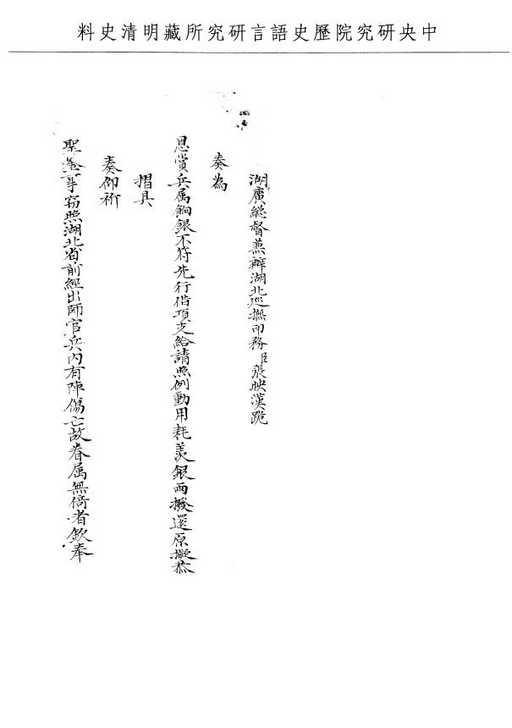 中央研究院歷史語言研究所藏明清史料
湖廣總督兼辦湖北巡撫印務臣張映漢跪
奏為
恩賞兵属餉銀不符先行借項支給請照例動用耗羨銀兩撥還原欵恭
摺具
奏仰祈
聖鑒事竊照湖北省前經出師官兵內有陣傷亡故眷属無倚者欽奉